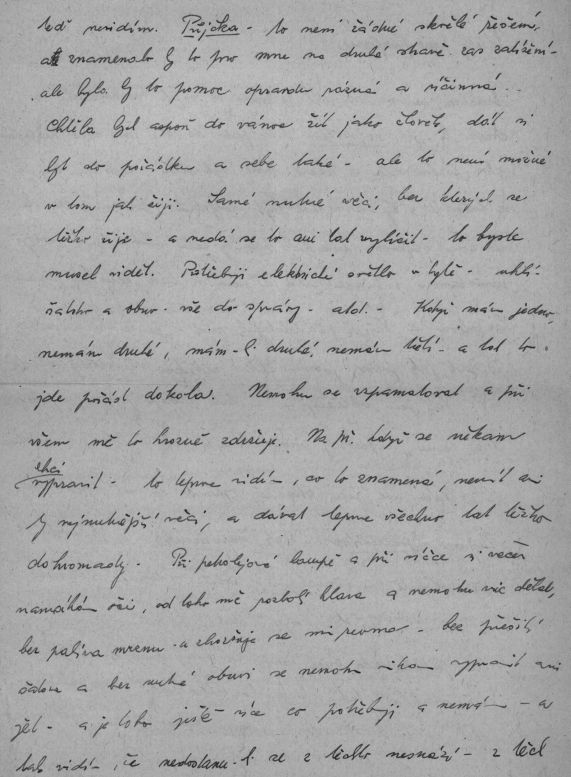 teď nevidím. Půjčka - to není žádné skvělé řešení,
a znamenalo by to pro mne na druhé straně zas zatížení -
ale bylo by to pomoc opravdu rázná a účinná. -
Chtěla bych aspoň do vánoc žít jako člověk, dát si
byt do pořádku a sebe také - ale to není možné
v tom jak žiji. Samé nutné věci, bez kterých se
těžko žije - a nedá se to ani tak vylíčit - to byste
musel vidět. Potřebuji elektrické světlo v bytě - uhlí -
šatstvo a obuv - vše do správy - atd. - Když mám jedno,
nemám druhé, mám-li druhé, nemám třetí - a tak to
jde pořád dokola. Nemohu se vzpamatovat a při
všem mě to hrozně zdržuje. Na př. když se někam
chci
vypravit - to teprve vidím, co to znamená, nemít ani
ty nejnutnější věci, a dávat teprve všechno tak těžko
dohromady. Při petrolejové lampě a při svíčce si večer
namáhám oči, od toho mě rozbolí hlava a nemohu víc dělat,
bez paliva mrznu a zhoršuje se mi revma - bez přešití
šatů a bez nutné obuvi se nemohu nikam vypravit ani
jít - a je toho ještě více co potřebuji a nemám - a
tak vidím, že nedostanu-li se z těchto nesnází - z těch